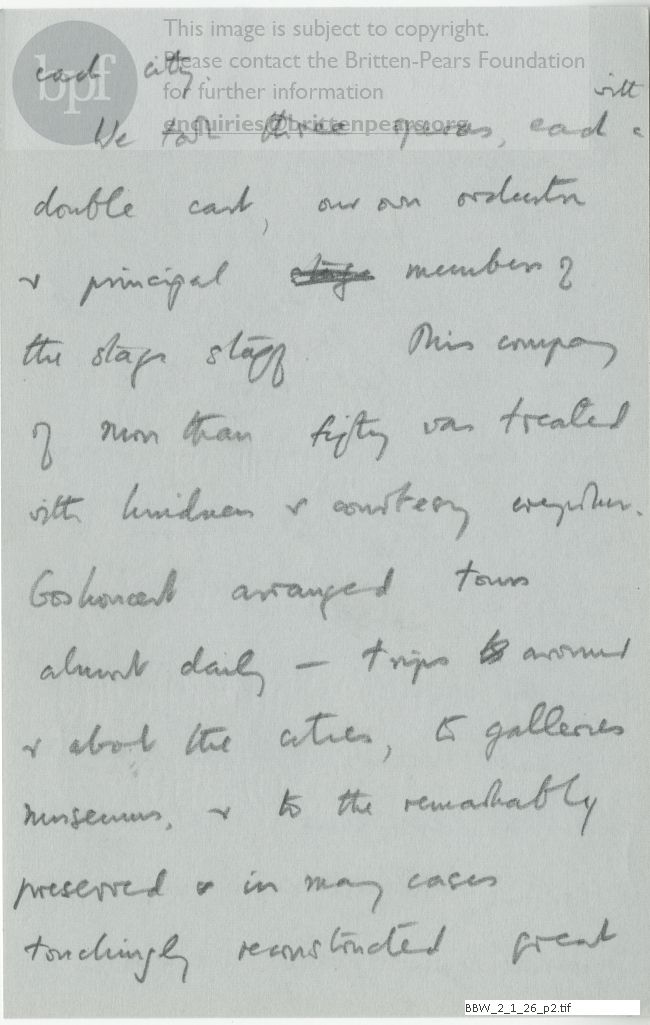 This image is subject to copyright.
Please contact the Britten-Pears Foundation
for further information
enquiries@brittenpears.org
bpf
each city.
We took three operas, each with a
double cast, our own orchestra
& principal stage members of
the stage staff This company
of more than fifty was treated
with kindness & courtesy everywhere.
Goskoncert arranged tours
almost daily — trips to around
& about the cities, to galleries
museums, & to the remarkably
preserved & in many cases
touchingly reconstructed great
BBW_2_1_26_p2.tif